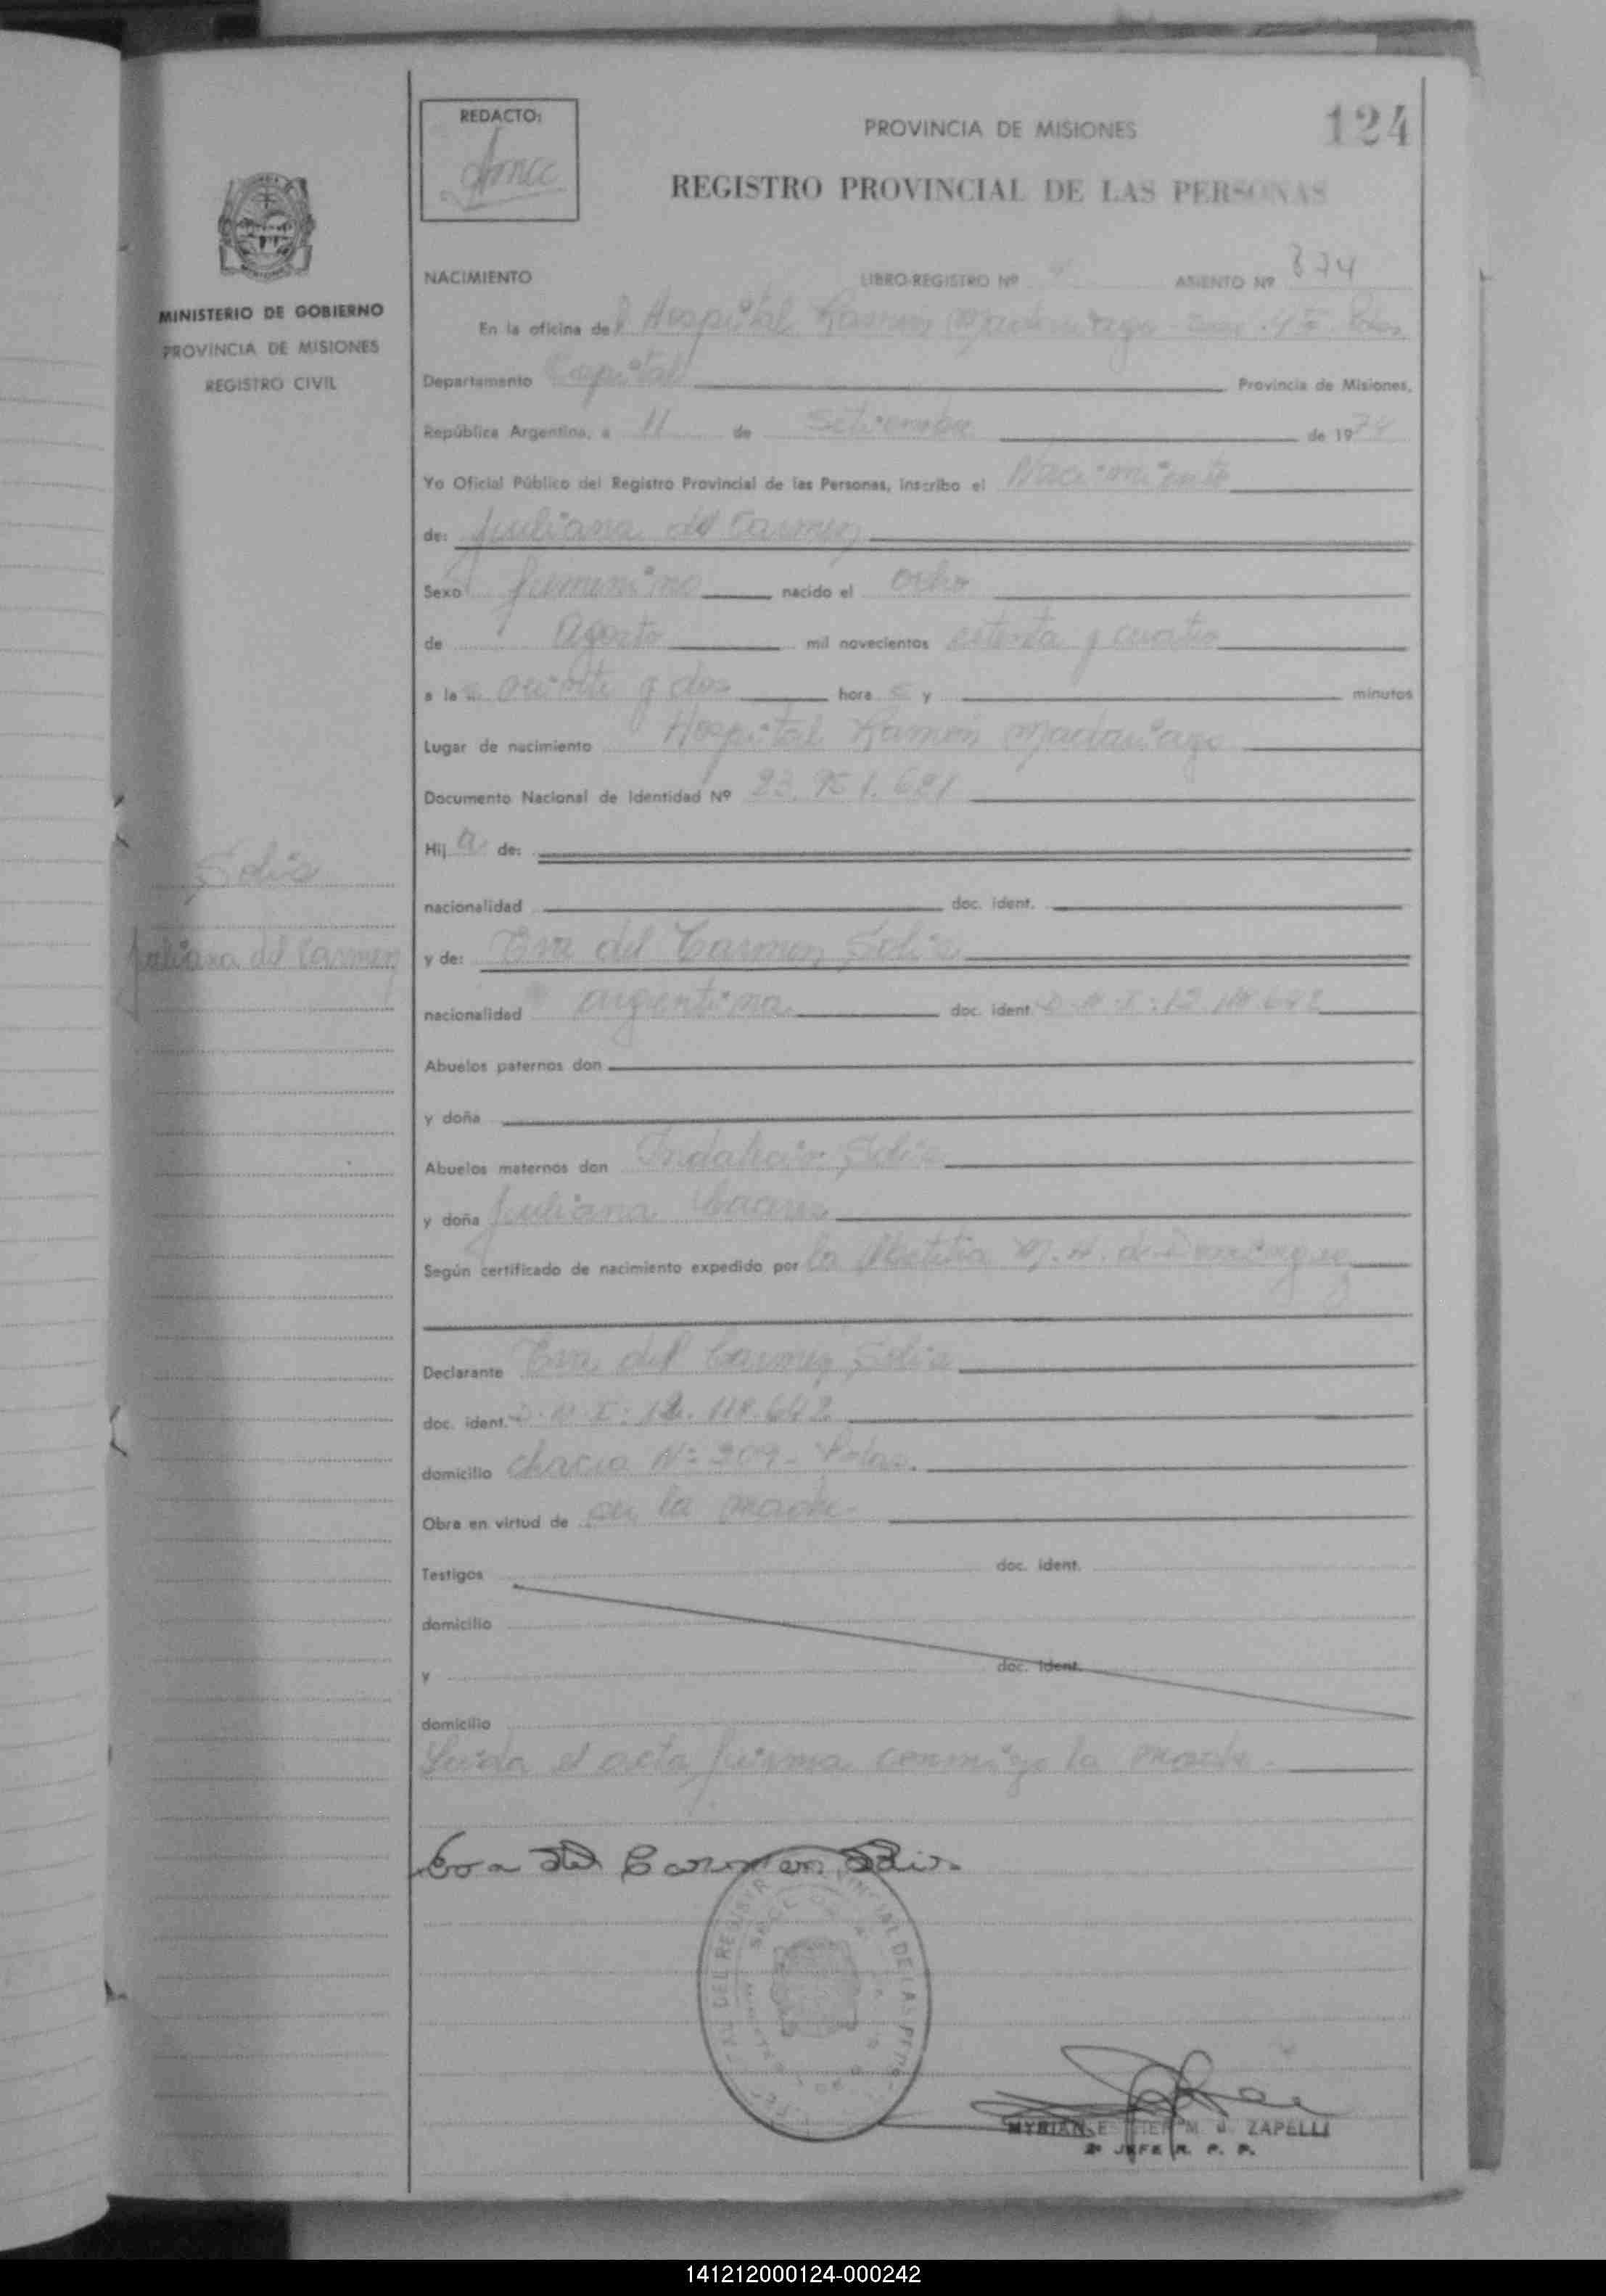 REDACTO:
PROVINCIA DE MISIONES
124
REGISTRO PROVINCIAL DE LAS PERSONAS
MINISTERIO DE GOBIERNO
PROVINCIA DE MISIONES
REGISTRO CIVIL
NACIMIENTO LIBRO-REGISTRO Nº ASIENTO Nº 874
En la oficina del Hospital Ramon Madariaga
Departamento Capital Provincia de Misiones,
República Argentina, a 11 de Setiembre de 1974
Yo Oficial Público del Registro Provincial de las Personas, inscribo el Nacimiento
de: Juliana del Carmen
Sexo femenino nacido el ocho
de Agosto mil novecientos setenta y cuatro
a la s veinte y dos hora s y minutos
Lugar de nacimiento Hospital Ramon Madariaga
Documento Nacional de Identidad Nº 23.951.621
Hij a de:
nacionalidad doc. ident.
Solis
Juliana del Carmen
y de: Eva del Carmen Solis
nacionalidad argentina doc. ident. D.N.I: 12.118.642
Abuelos paternos don
y doña
Abuelos maternos don Indalecio Solis
y doña Juliana
Según certificado de nacimiento expedido por la Obstetra M. H. de
Declarante Eva del Carmen Solis
doc. ident. D.N.I: 12.118.642
domicilio chacra Nº 209 - Pdas.
Obra en virtud de ser la madre
Testigos doc. ident.
domicilio
y doc. ident.
domicilio
Leida el acta firma conmigo la madre.
Eva del Carmen Solis
MYRIAN ESTHER M. J. ZAPELLI
2º JEFE R. P. P.
141212000124-000242